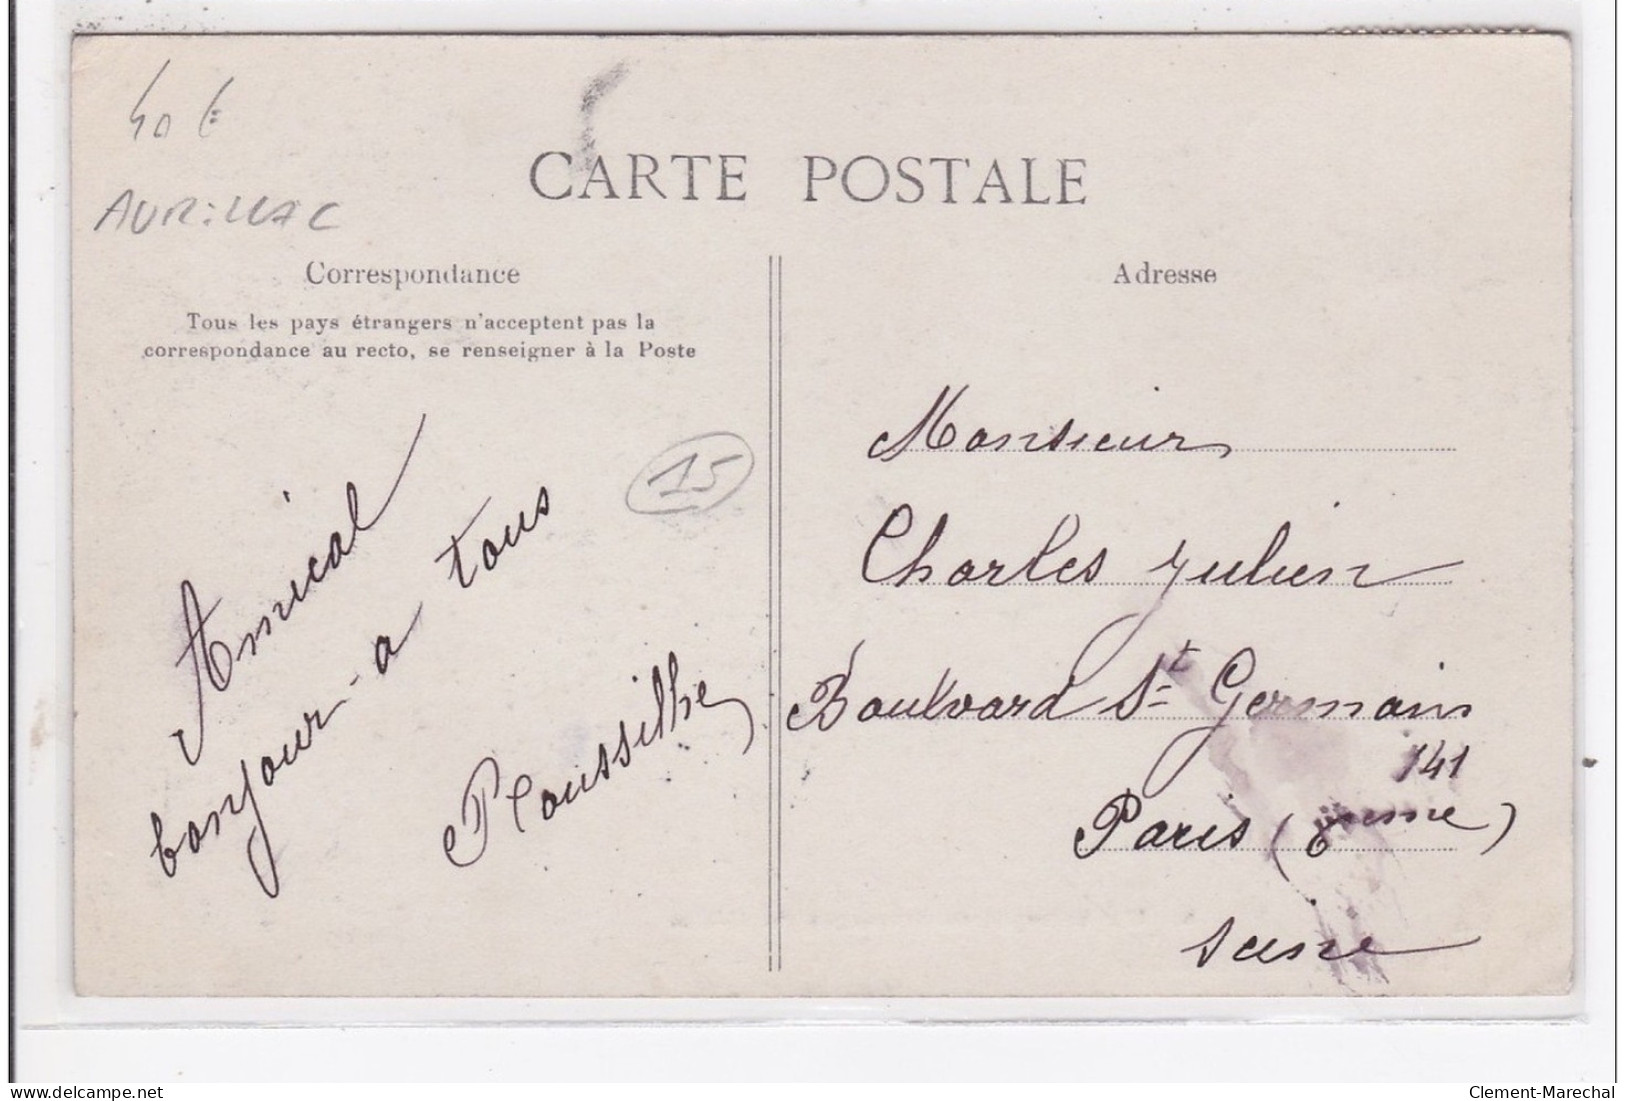 40 €
AURILLAC
CARTE POSTALE
Correspondance
Tous les pays étrangers n'acceptent pas la
correspondance au recto, se renseigner à la Poste
15
Amical
bonjour a tous
Roussilhe
Adresse
Monsieur
Charles Julien
Boulvard St Germain
141
Paris (6eme)
Seine
www.delcampe.net
Clement-Marechal